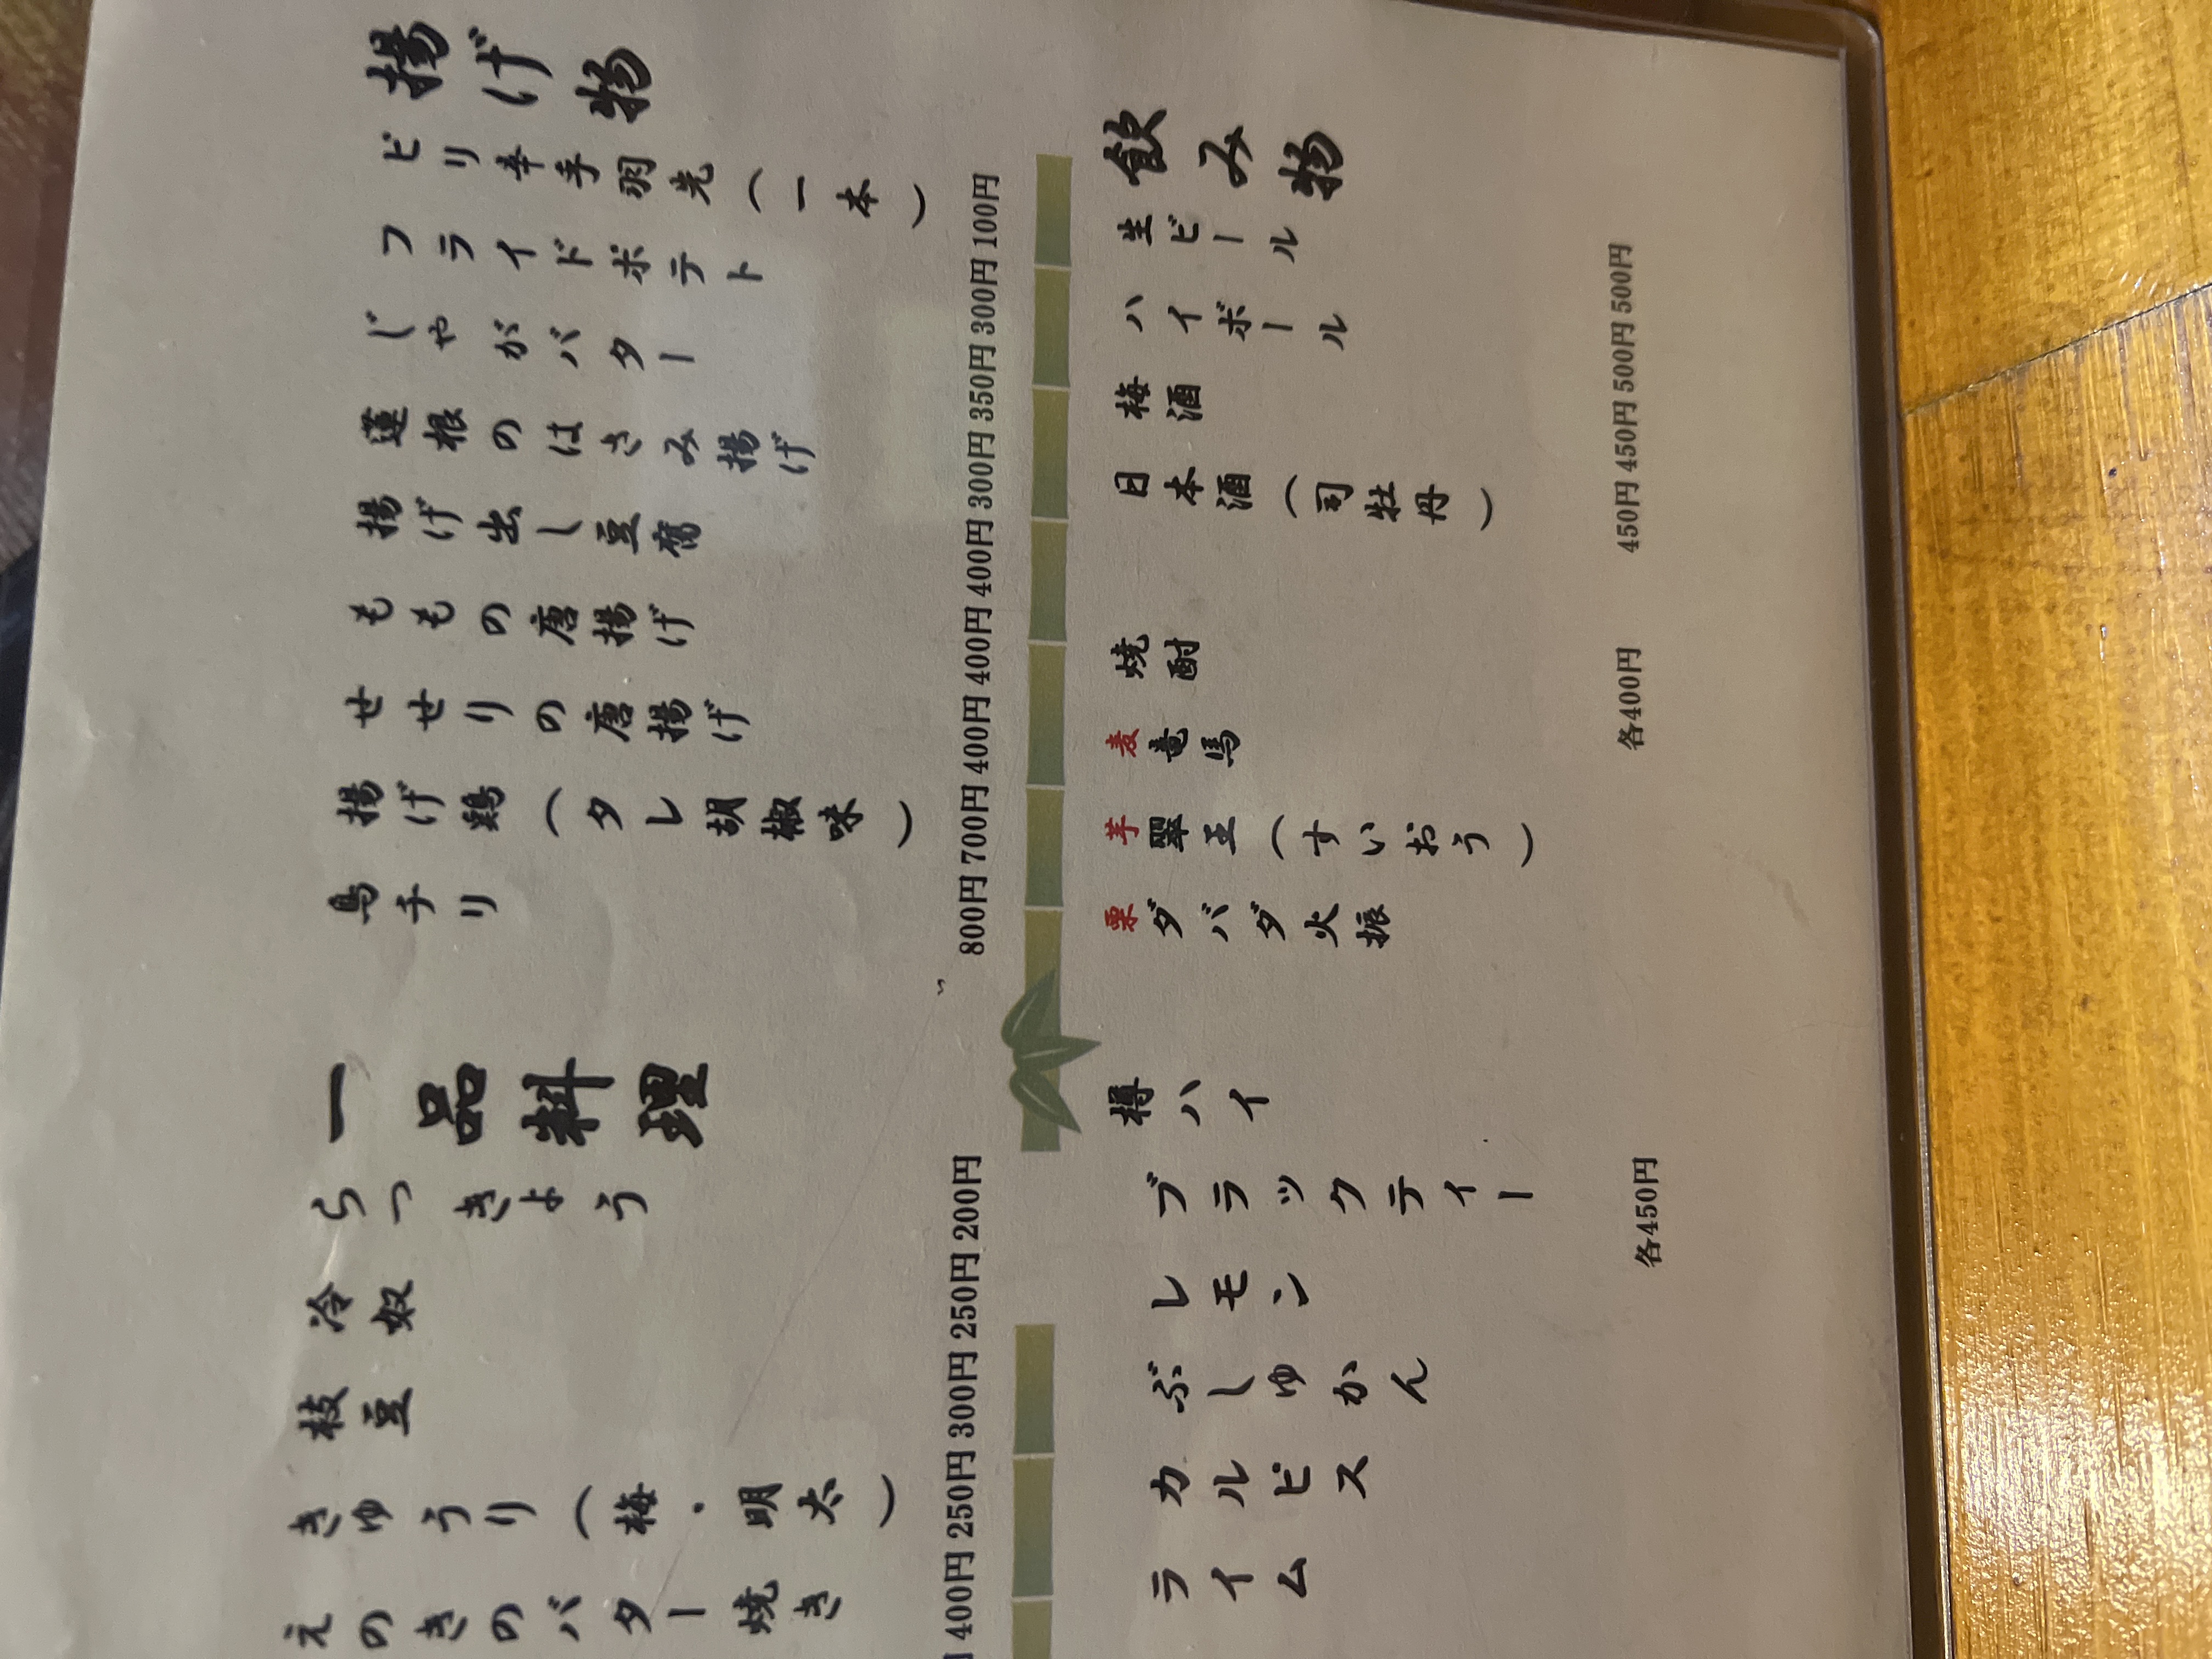 揚げ物
ピリ辛手羽先（一本） 100円
フライドポテト 300円
じゃがバター 350円
蓮根のはさみ揚げ 300円
揚げ出し豆腐 400円
ももの唐揚げ 400円
せせりの唐揚げ 400円
揚げ鶏（タレ胡椒味） 700円
鳥チリ 800円
一品料理
らっきょう 200円
冷奴 250円
枝豆 300円
きゅうり（梅・明太） 250円
えのきのバター焼き 400円
飲み物
生ビール 500円
ハイボール 500円
梅酒 450円
日本酒（司牡丹） 450円
焼酎 各400円
麦 竜馬
芋 翠王（すいおう）
栗 ダバダ火振
樽ハイ
ブラックティー 各450円
レモン
ぶしゅかん
カルピス
ライム